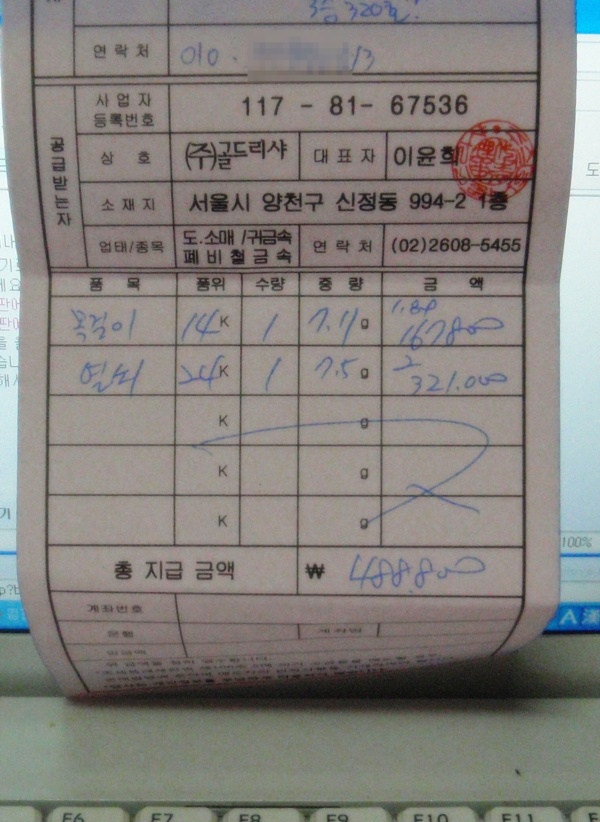 3층 320호.
연락처 010 - 3
공급받는자
사업자등록번호 117 - 81- 67536
상 호 (주)골드리샤 대표자 이윤희
소재지 서울시 양천구 신정동 994-2 1층
업태/종목 도.소매 /귀금속 폐비철금속 연락처 (02)2608-5455
품 목 품위 수량 중 량 금 액
목걸이 14K 1 7.11g 167800
열쇠 24K 1 7.5g 321.000
K g
K g
K g
총 지급 금액 ₩ 488.800
계좌번호
은행 계좌명
입금액
100%
A 漢
F6 F7 F8 F9 F10 F11